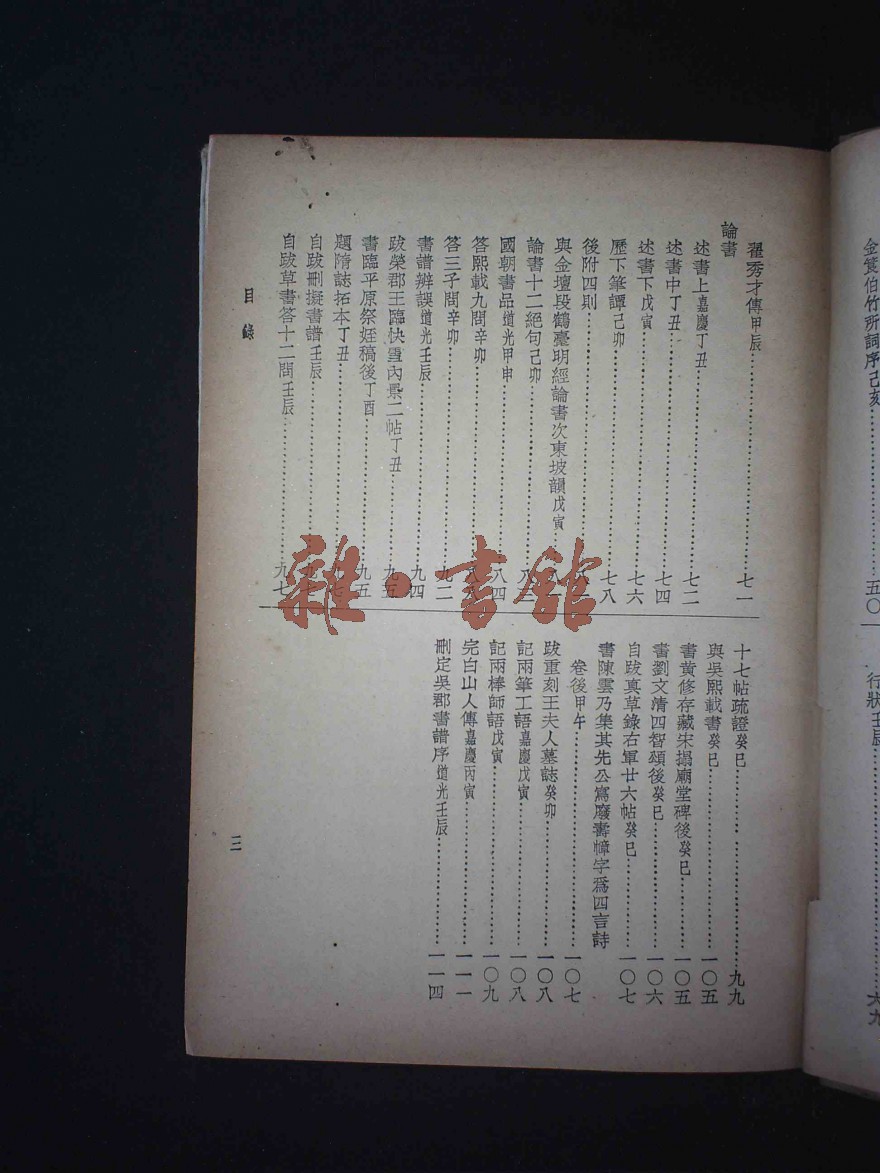 金箋伯竹所詞序己亥……五〇
行狀壬辰……六九
翟秀才傳甲辰……七一
論書
述書上嘉慶丁丑……七二
述書中丁丑……七四
述書下戊寅……七六
歷下筆譚己卯……七八
後附四則……
與金壇段鶴臺明經論書次東坡韻戊寅……
論書十二絕句己卯……
國朝書品道光甲申……八四
答熙載九問辛卯……
答三子問辛卯……九二
書譜辨誤道光壬辰……九四
跋榮郡王臨快雪內景二帖丁丑……九五
書臨平原祭姪稿後丁酉……九五
題隋誌拓本丁丑……
自跋刪擬書譜壬辰……
自跋草書答十二問壬辰……九七
十七帖疏證癸巳……九九
與吳熙載書癸巳……一〇五
書黃修存藏宋搨廟堂碑後癸巳……一〇五
書劉文清四智頌後癸巳……一〇六
自跋真草錄右軍廿六帖癸巳……一〇七
書陳雲乃集其先公寫廢壽幛字爲四言詩
卷後甲午……一〇七
跋重刻王夫人墓誌癸卯……一〇八
記兩筆工語嘉慶戊寅……一〇八
記兩棒師語戊寅……一〇九
完白山人傳嘉慶丙寅……一一一
刪定吳郡書譜序道光壬辰……一一四
目錄
三
雜·書館